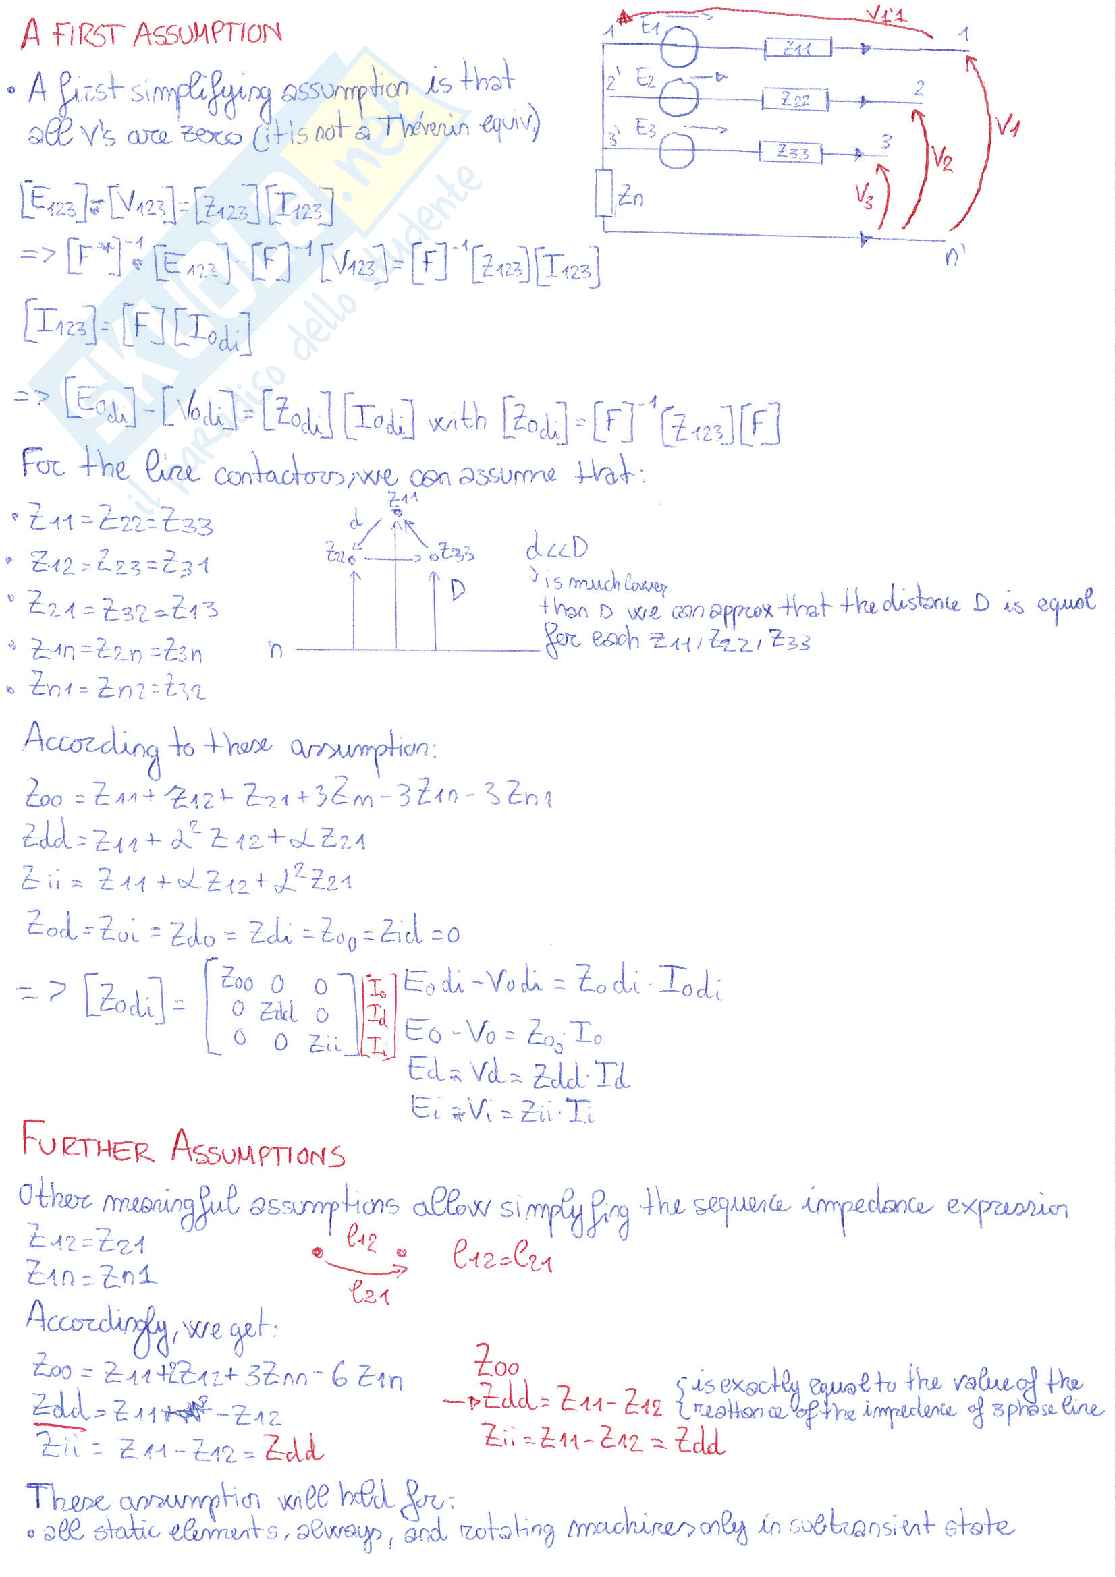 A FIRST ASSUMPTION
• A first simplifying assumption is that
all V's are zero (it is not a Thévenin equiv.)
[E123] - [V123] = [Z123] [I123]
=> [F]⁻¹ [E123] - [F]⁻¹ [V123] = [F]⁻¹ [Z123] [I123]
[I123] = [F] [I0di]
=> [E0di] - [V0di] = [Z0di] [I0di] with [Z0di] = [F]⁻¹ [Z123] [F]
V1'1
1' E1 Z11 1
2' E2 Z22 2
3' E3 Z33 3
V1
V2
V3
Zn
n'
For the line contactors, we can assume that:
• Z11 = Z22 = Z33
• Z12 = Z23 = Z31
• Z21 = Z32 = Z13
• Z1n = Z2n = Z3n
• Zn1 = Zn2 = Z32
Z11
d
Z22 Z33
D
n
d<<D
is much lower
than D we can approx that the distance D is equal
for each Z11, Z22, Z33
According to these assumption:
Z00 = Z11 + Z12 + Z21 + 3Znn - 3Z1n - 3Zn1
Zdd = Z11 + α² Z12 + α Z21
Zii = Z11 + α Z12 + α² Z21
Z0d = Z0i = Zd0 = Zdi = Z00 = Zid = 0
=> [Z0di] = [Z00 0 0
0 Zdd 0
0 0 Zii] [I0
Id
Ii]
E0di - V0di = Z0di · I0di
E0 - V0 = Z00 · I0
Ed - Vd = Zdd · Id
Ei - Vi = Zii · Ii
FURTHER ASSUMPTIONS
Other meaningful assumptions allow simplyfing the sequence impedance expression
Z12 = Z21
Z1n = Zn1
l12
l21
l12 = l21
Accordingly, we get:
Z00 = Z11 + 2Z12 + 3Znn - 6 Z1n
Zdd = Z11 - Z12
Zii = Z11 - Z12 = Zdd
Z00
→ Zdd = Z11 - Z12 { is exactly equal to the value of the
reattance of the impedence of 3 phase line
Zii = Z11 - Z12 = Zdd
These assumption will hold for:
• all static elements, always, and rotating machines only in subtransient state
SKUOLA.net
il paradiso dello studente